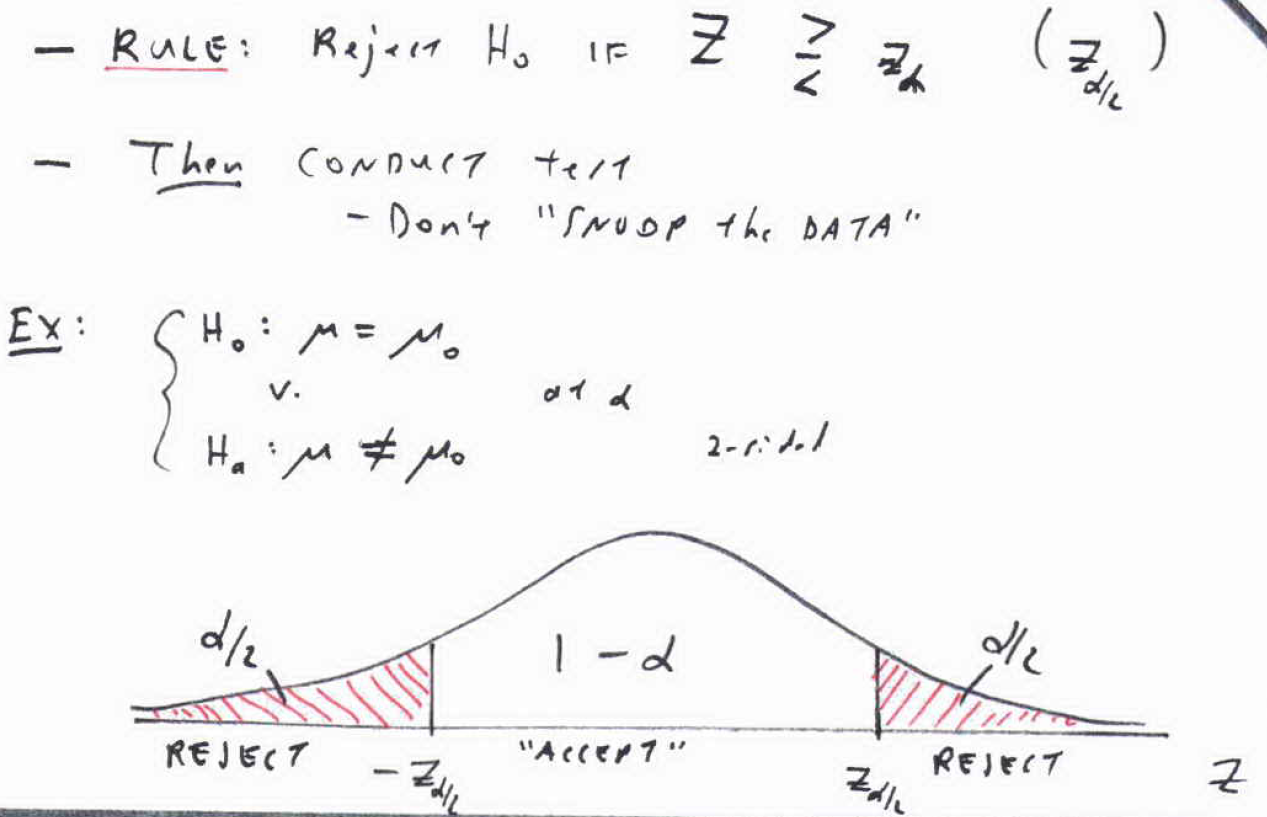 — RULE: Reject H₀ IF Z ≷ z_α (z_α/2)
— Then CONDUCT test
- Don't "SNOOP the DATA"
EX: { H₀: μ = μ₀
v. at α
Hₐ: μ ≠ μ₀ 2-sided
α/2 1 - α α/2
REJECT -z_α/2 "ACCEPT" z_α/2 REJECT Z